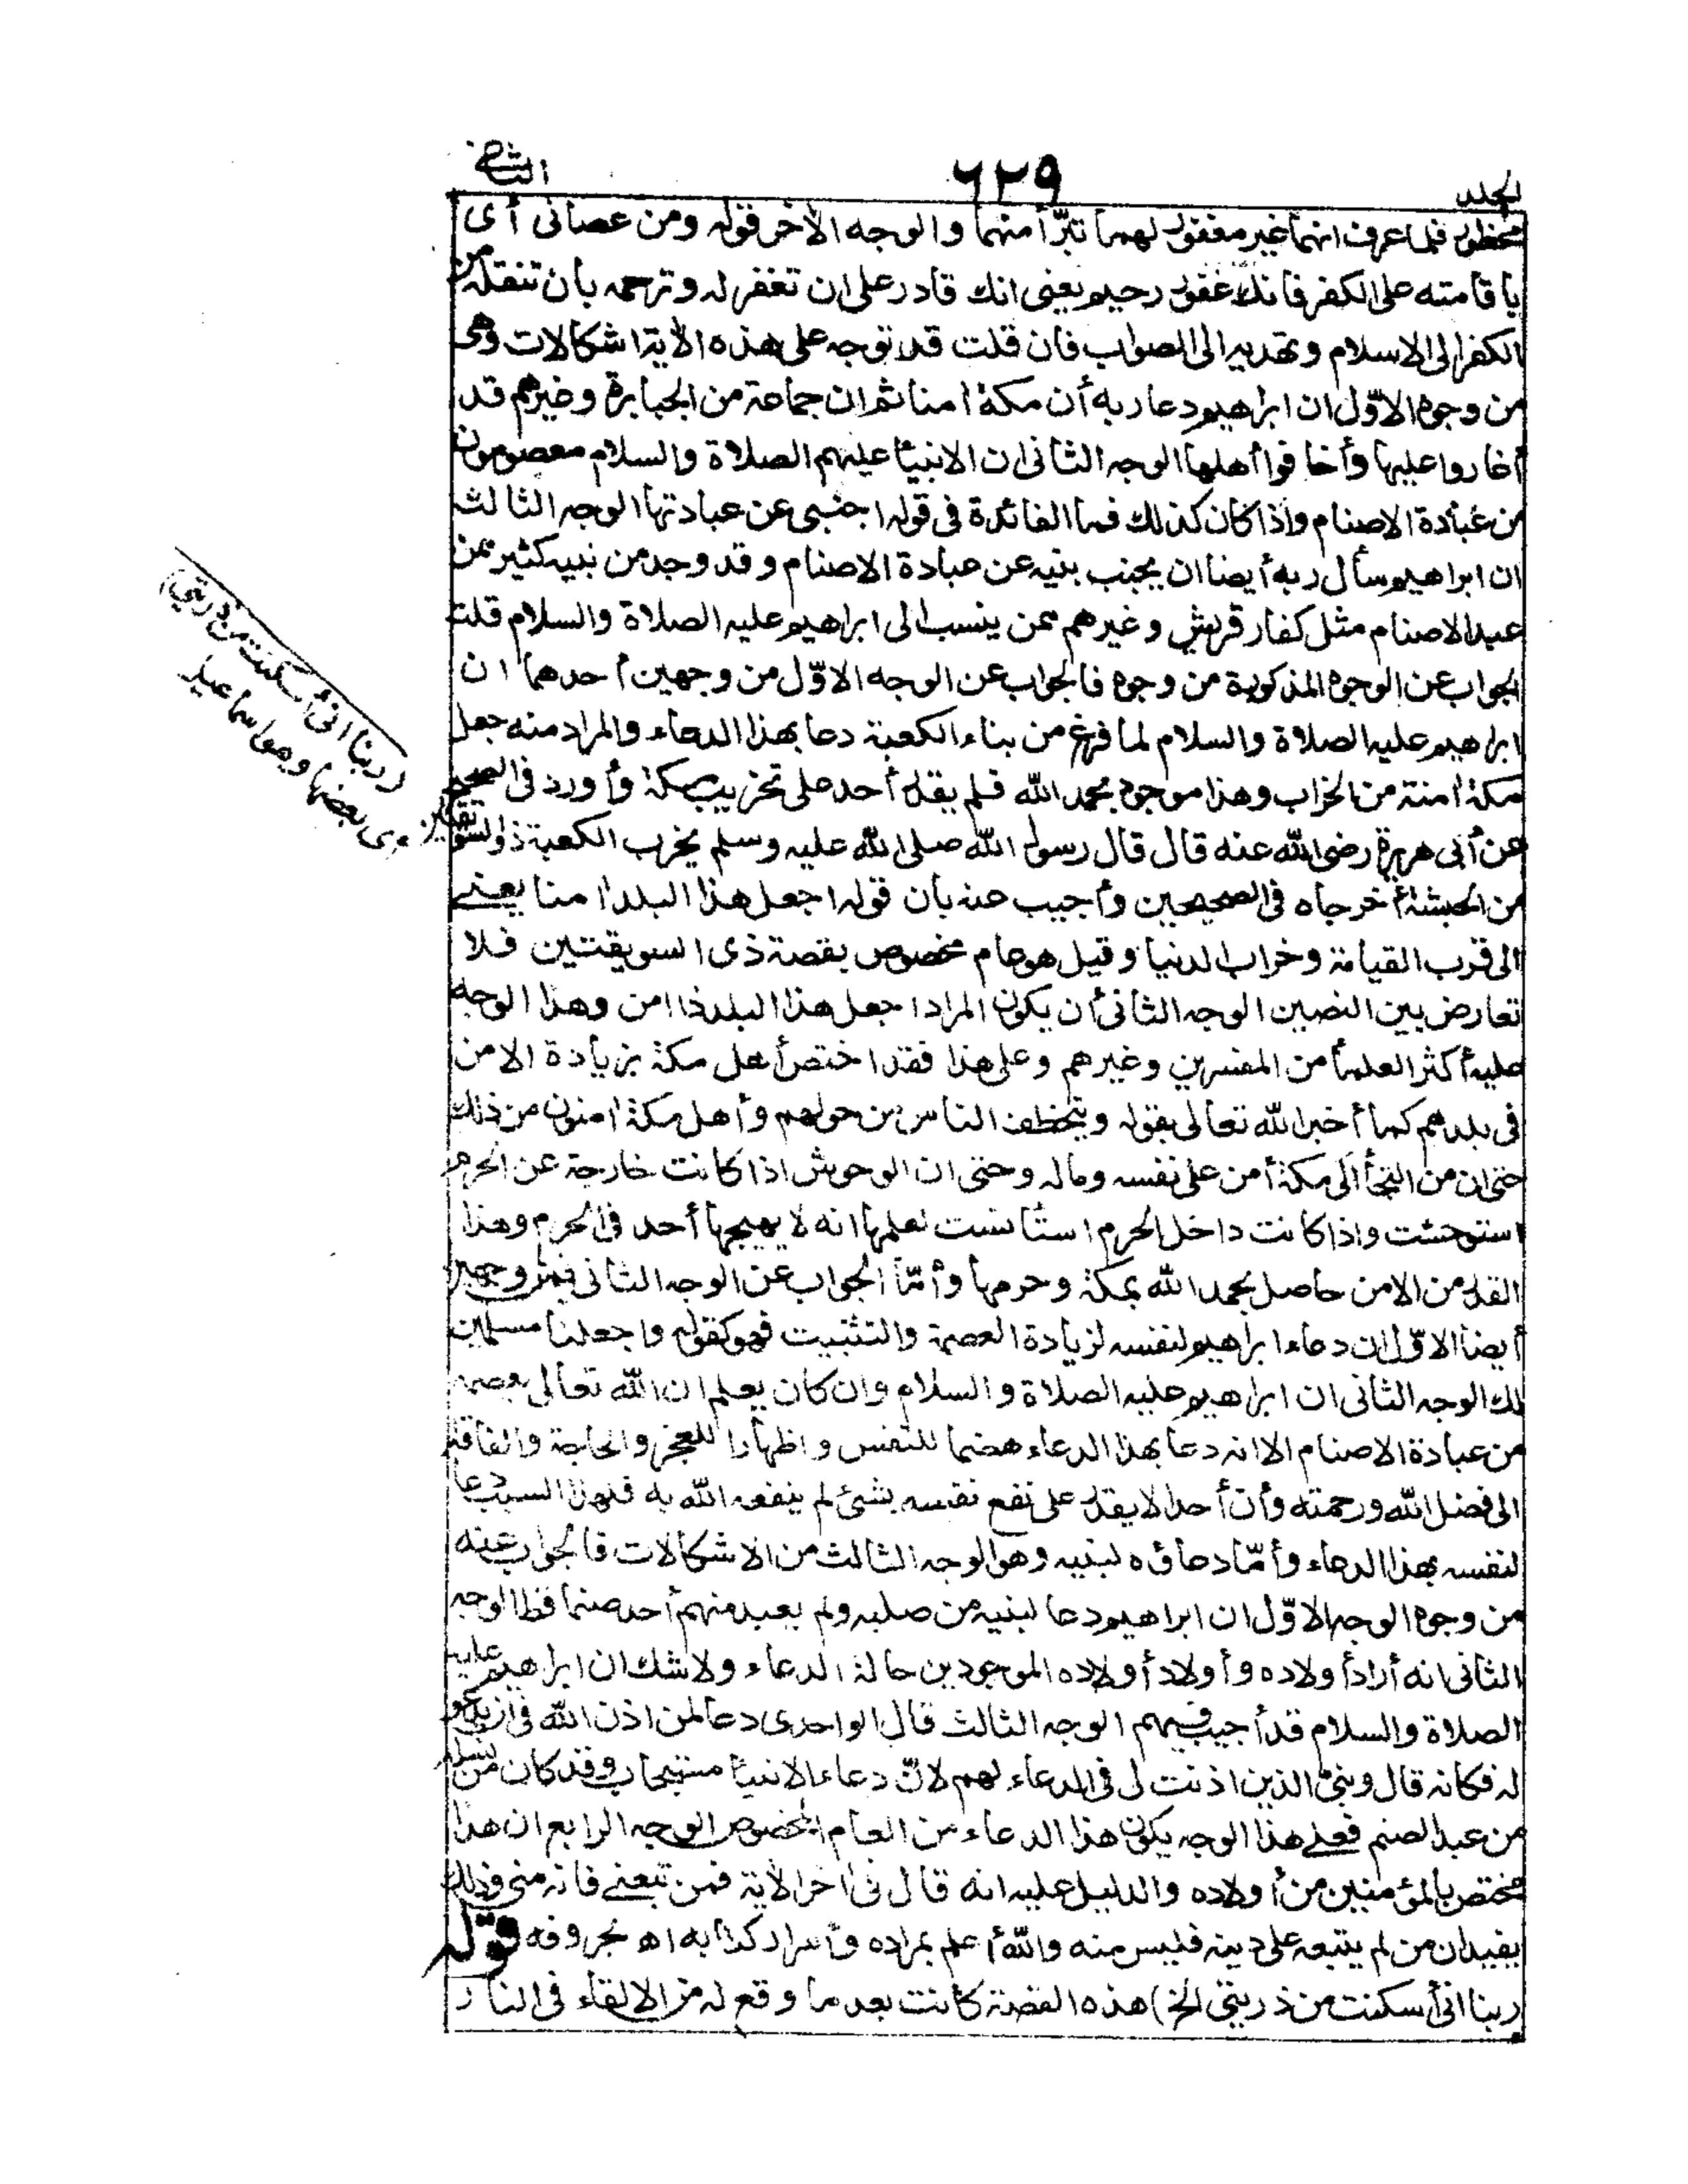 الجلد ٦٢٩ الثانى
محظور فلما عرف انهما غير مغفور لهما تبرّأ منهما والوجه الآخر قوله ومن عصانى أى
باقامته على الكفر فانك غفور رحيم يعنى انك قادر على ان تغفر له وترحمه بان تنقله من
الكفر الى الاسلام وتهديه الى الصواب فان قلت قد توجه على هذه الآية اشكالات وهى
من وجوه الاوّل ان ابراهيم دعا ربه أن مكة آمنا ثم ان جماعة من الجبابرة وغيرهم قد
أغاروا عليها وأخافوا أهلها الوجه الثانى ان الانبيا عليهم الصلاة والسلام معصومون
من عبادة الاصنام واذا كان كذلك فما الفائدة فى قوله اجنبنى عن عبادتها الوجه الثالث
ان ابراهيم سأل ربه أيضا ان يجنب بنيه عن عبادة الاصنام وقد وجد من بنيه كثير ممن
عبد الاصنام مثل كفار قريش وغيرهم ممن ينسب الى ابراهيم عليه الصلاة والسلام قلت
الجواب عن الوجوه المذكورة من وجوه فالجواب عن الوجه الاوّل من وجهين أحدهما ان
ابراهيم عليه الصلاة والسلام لما فرغ من بناء الكعبة دعا بهذا الدعاء والمراد منه جعل
مكة آمنة من الخراب وهذا موجود بحمد الله فلم يقدر أحد على تخريب مكة وأورد فى الصحيح
عن أبى هريرة رضى الله عنه قال قال رسول الله صلى الله عليه وسلم يخرب الكعبة ذو السويقتين
من الحبشة أخرجاه فى الصحيحين وأجيب عنه بان قوله اجعل هذا البلد آمنا يعنى
الى قرب القيامة وخراب الدنيا وقيل هو عام مخصوص بقصة ذى السويقتين فلا
تعارض بين النصين الوجه الثانى أن يكون المراد اجعل هذا البلد ذا امن وهذا الوجه
عليه أكثر العلما من المفسرين وغيرهم وعلى هذا فقد اختص أهل مكة بزيادة الامن
فى بلدهم كما أخبر الله تعالى بقوله ويتخطف الناس من حولهم وأهل مكة آمنون من ذلك
حتى ان من التجأ الى مكة أمن على نفسه وماله وحتى ان الوحوش اذا كانت خارجة عن الحرم
استوحشت واذا كانت داخل الحرم استأنست لعلمها انه لا يهيجها أحد فى الحرم وهذا
القدر من الامن حاصل بحمد الله بمكة وحرمها وأمّا الجواب عن الوجه الثانى فمن وجهين
أيضا الاوّل ان دعاء ابراهيم لنفسه لزيادة العصمة والتثبيت فهو كقوله واجعلنا مسلمين
لك الوجه الثانى ان ابراهيم عليه الصلاة والسلام وان كان يعلم ان الله تعالى يعصمه
من عبادة الاصنام الا انه دعا بهذا الدعاء هضما للنفس واظهارا للعجز والحاجة والفاقة
الى فضل الله ورحمته وأن أحدا لا يقدر على نفع نفسه بشئ لم ينفعه الله به فلهذا السبب دعا
لنفسه بهذا الدعاء وأمّا دعاؤه لبنيه وهو الوجه الثالث من الاشكالات فالجواب عنه
من وجوه الوجه الاوّل ان ابراهيم دعا لبنيه من صلبه ولم يعبد منهم أحد صنما قط الوجه
الثانى انه أراد أولاده وأولاد أولاده الموجودين حالة الدعاء ولا شك ان ابراهيم عليه
الصلاة والسلام قد أجيب فيهم الوجه الثالث قال الواحدى دعا لمن اذن الله فى ان يدعو
له فكانه قال وبنىّ الذين اذنت لى فى الدعاء لهم لانّ دعاء الانبيا مستجاب وقد كان من نسله
من عبد الصنم فعلى هذا الوجه يكون هذا الدعاء من العام المخصوص الوجه الرابع ان هذا
مختص بالمؤمنين من أولاده والدليل عليه انه قال فى آخر الآية فمن تبعنى فانه منى وذلك
يفيد ان من لم يتبعه على دينه فليس منه والله أعلم بمراده وأسرار كتابه اه بحروفه قوله
ربنا انى أسكنت من ذريتى الخ) هذه القصة كانت بعد ما وقع له من الالقاء فى النار
(ربنا انى أسكنت من ذريتى)
أى بعضها وهو اسماعيل